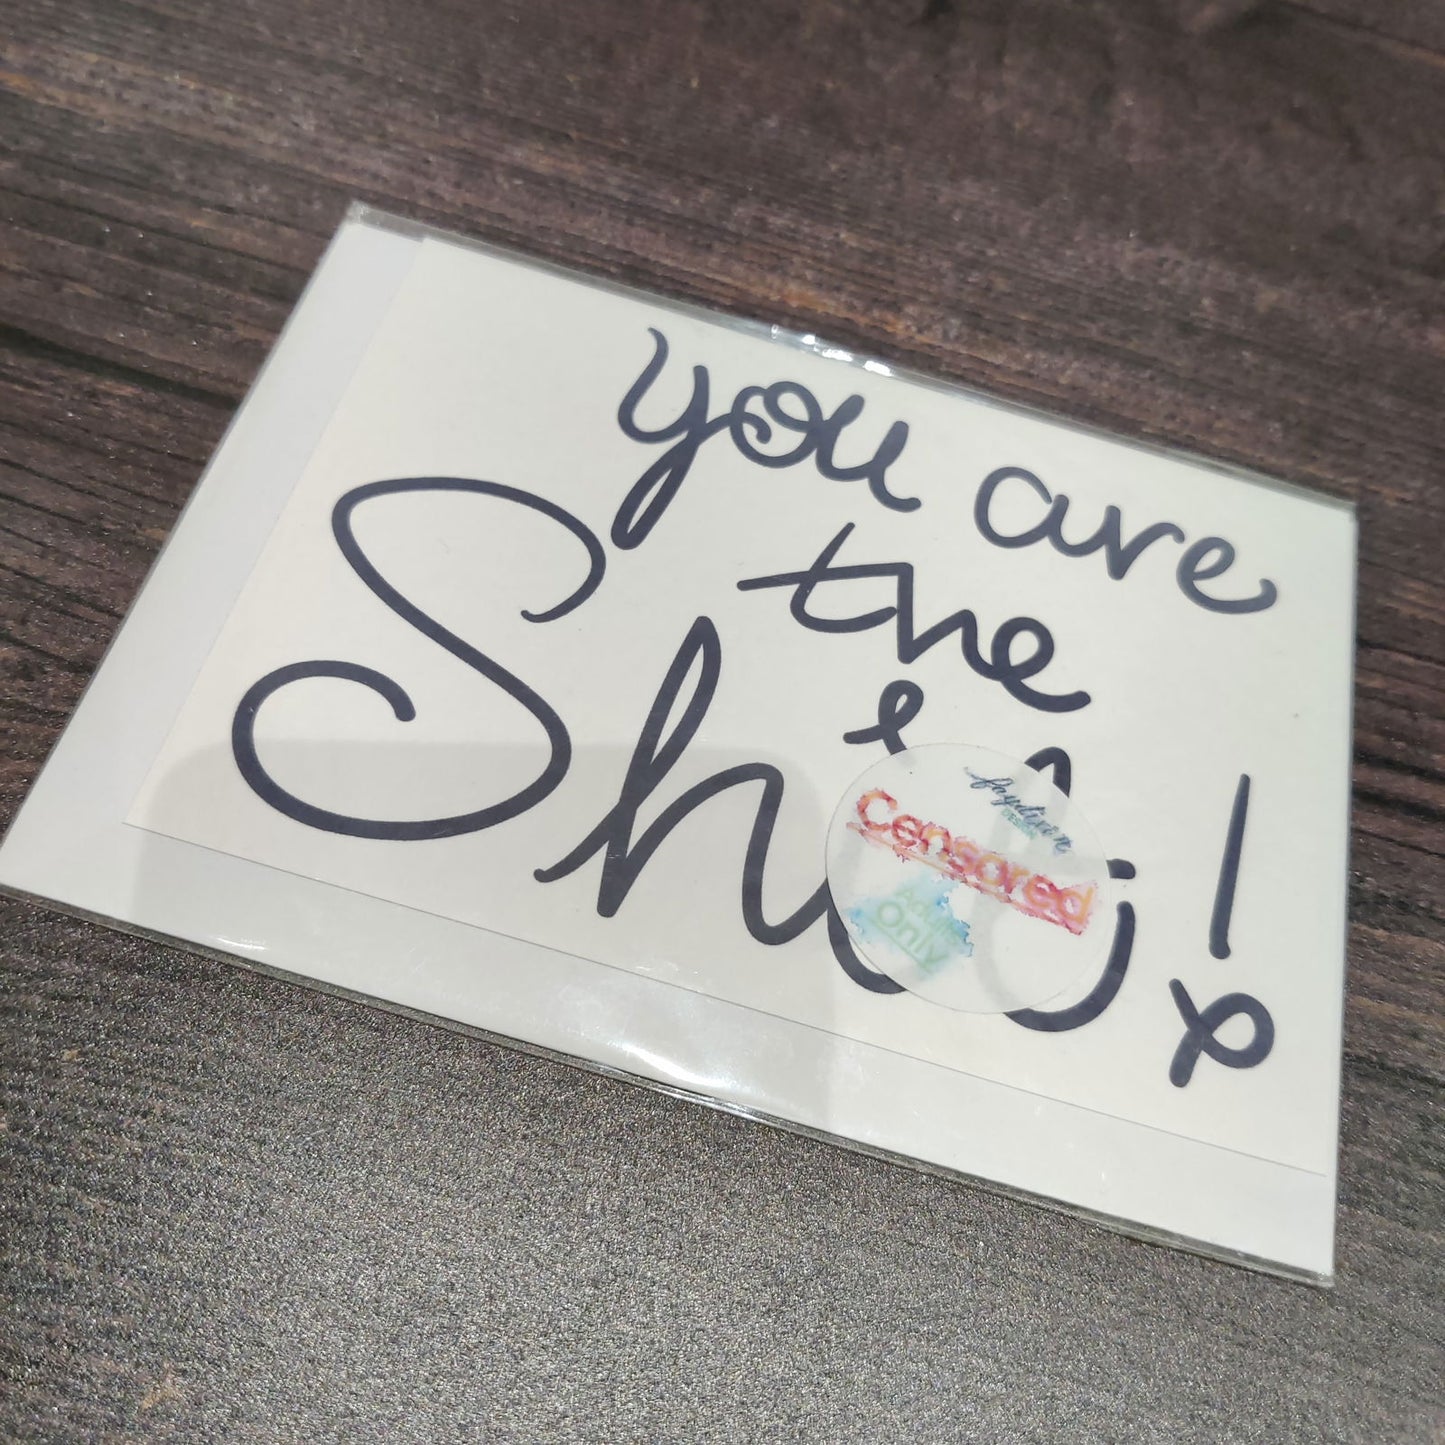 you are
the
Sh!
faydixon
DESIGN
Censored
Adults
Only